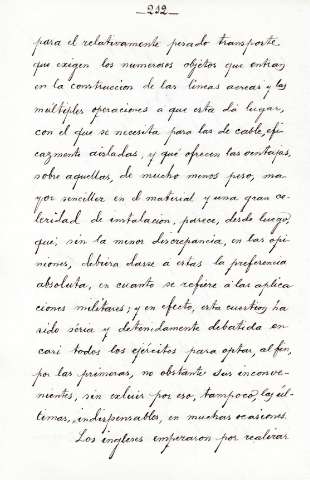 -212-
para el relativamente pesado transporte
que exigen los numerosos objetos que entran
en la construccion de las líneas aereas y las
múltiples operaciones a que esta dá lugar,
con el que se necesita para las de cable, efi-
cazmente aisladas, y que ofrecen las ventajas,
sobre aquellas, de mucho menos peso, ma-
yor sencillez en el material y una gran ce-
leridad de instalación, parece, desde luego,
que, sin la menor discrepancia, en las opi-
niones, debiera darse a estas la preferencia
absoluta, en cuanto se refiere á las aplica-
ciones militares; y en efecto, esta cuestion ha
sido séria y detenidamente debatida en
casi todos los ejércitos para optar, al fin,
por las primeras, no obstante sus inconve-
nientes, sin exluir por eso, tampoco, las úl-
timas, indispensables, en muchas ocasiones.
Los ingleses empezaron por realizar